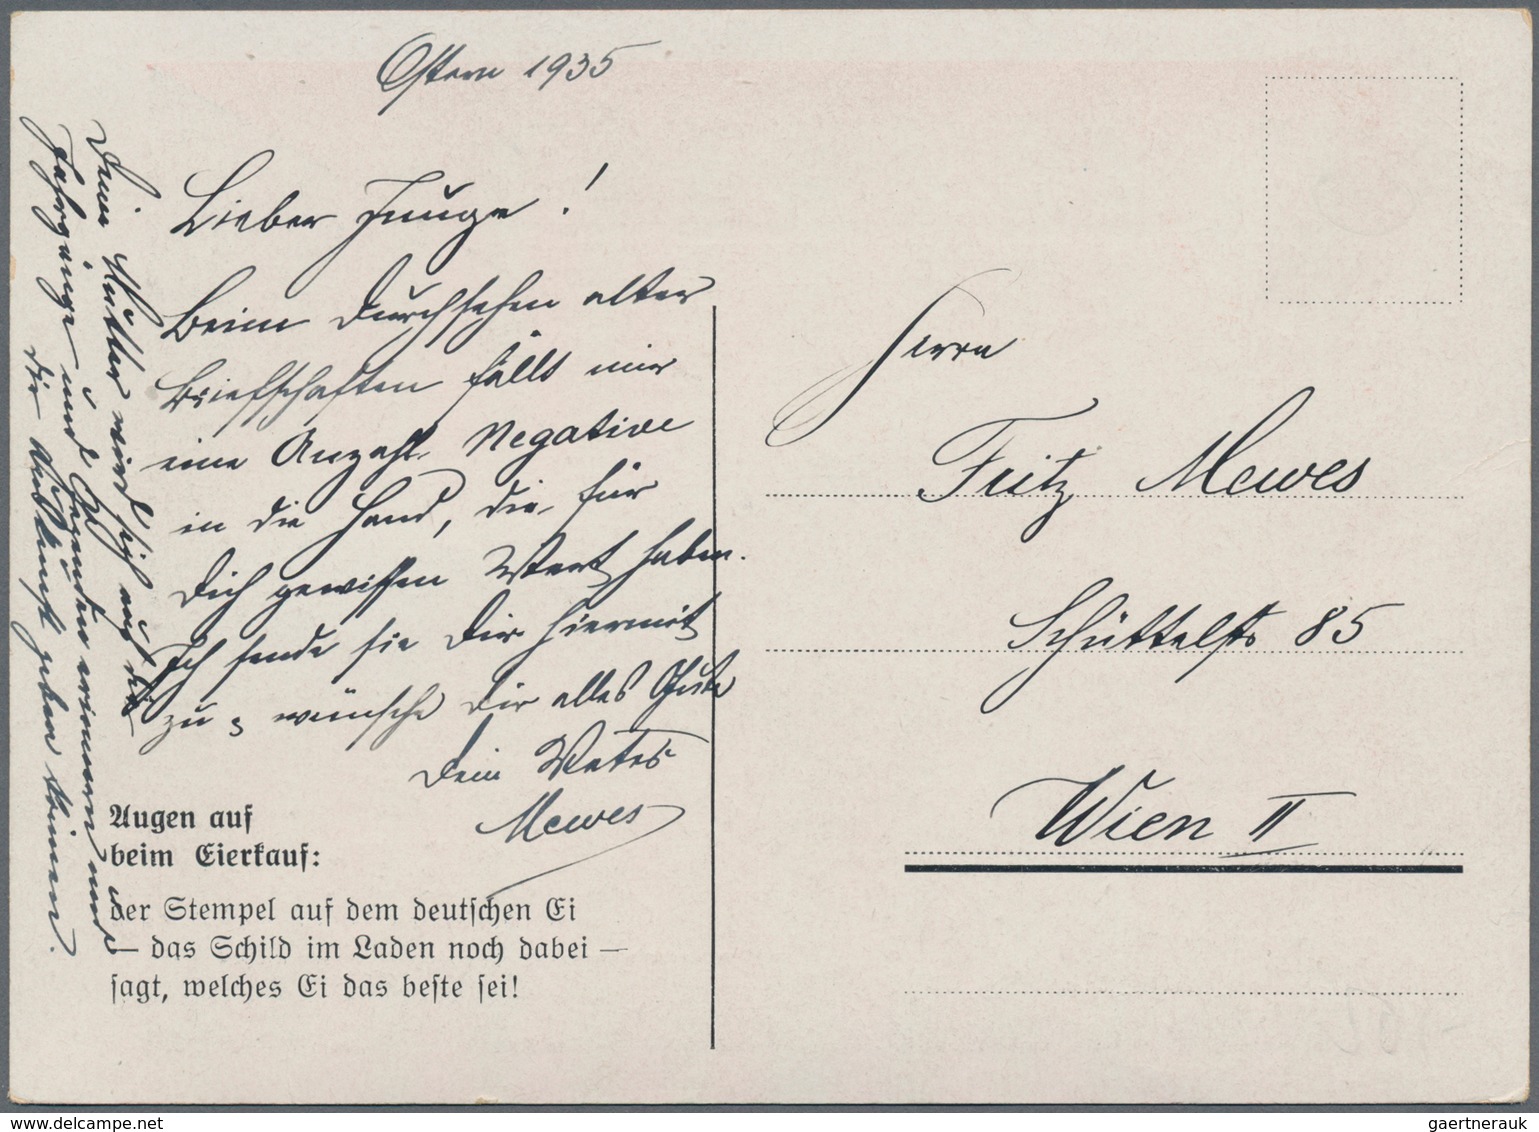 Ostern 1935
Lieber Junge!
Beim Durchsehen alter
Briefschaften fällt mir
eine Anzahl Negative
in die Hand, die für
Dich gewissen Wert haben.
Ich sende sie Dir hiermit
zu & wünsche Dir alles Gute
Dein Vater
Mewes
Deine Mutter wird sich auf die
Jahrgänge und Gegenden erinnern und
Dir Auskunft geben können.
Augen auf
beim Eierkauf:
der Stempel auf dem deutschen Ei
— das Schild im Laden noch dabei —
sagt, welches Ei das beste sei!
Herrn
Fritz Mewes
Schüttelstr 85
Wien II
gaertnerauk